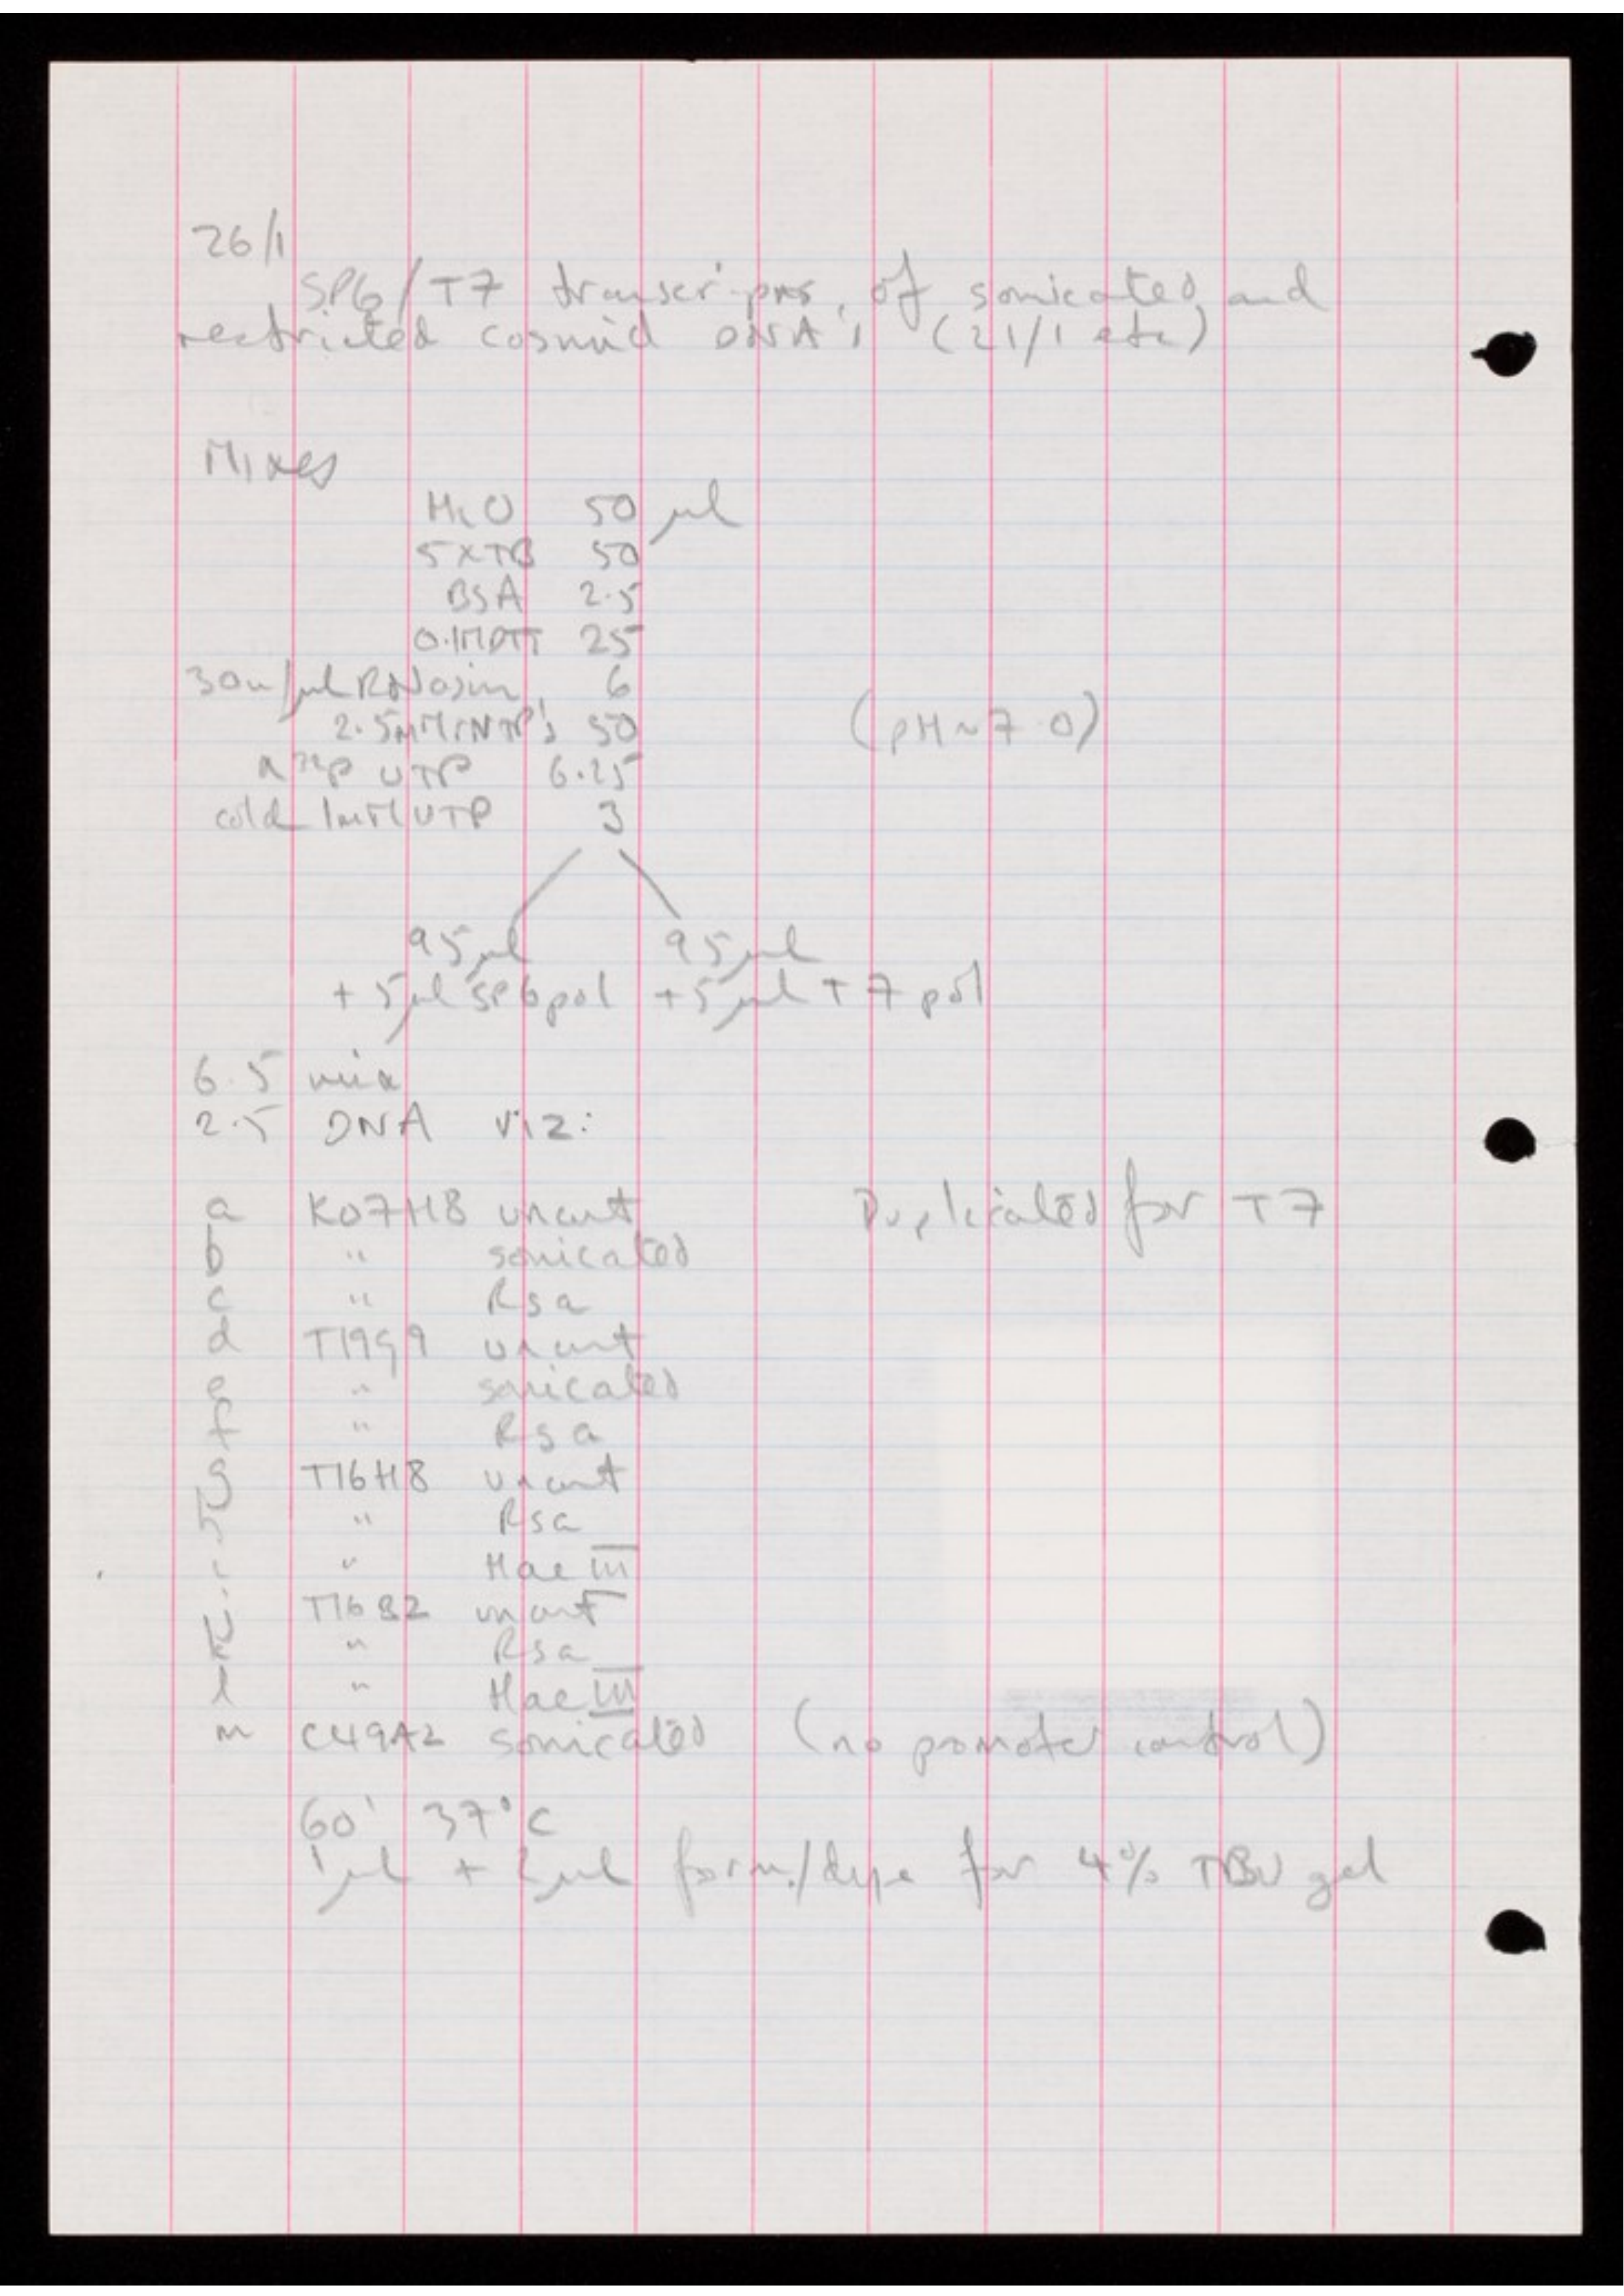 26/1
SP6/T7 transcr'pns. of sonicated and
restricted cosmid DNA's (21/1 etc)
Mixes
H2O 50 µl
5xTB 50
BSA 2.5
0.1M DTT 25
30u/µl RNasin 6
2.5mM rNTP's 50 (pH ~ 7.0)
α 32P UTP 6.25
cold 1mM UTP 3
95µl 95µl
+ 5µl SP6 pol + 5µl T7 pol
6.5 mix
2.5 DNA viz:
a K07H8 uncut Duplicated for T7
b " sonicated
c " Rsa
d T19G9 uncut
e " sonicated
f " Rsa
g T16H8 uncut
h " Rsa
i " Hae III
j T16B2 uncut
k " Rsa
l " Hae III
m C49A2 sonicated (no promoter control)
60' 37°C
1µl + 2µl form./dye for 4% TBU gel